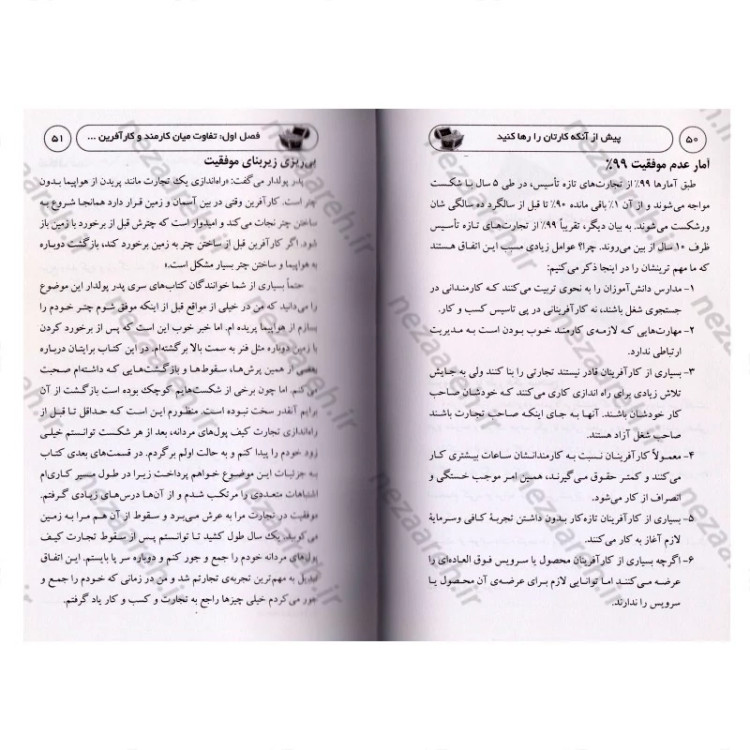 پیش از آنکه کارتان را رها کنید
۵۰
آمار عدم موفقیت ۹۹٪
طبق آمارها ۹۹٪ از تجارت‌های تازه تأسیس، در طی ۵ سال با شکست
مواجه می‌شوند و از آن ۱٪ باقی مانده ۹۰٪ تا قبل از سالگرد ده سالگی شان
ورشکست می‌شوند. به بیان دیگر، تقریباً ۹۹٪ از تجارت‌های تازه تأسیس
ظرف ۱۰ سال از بین می‌روند. چرا؟ عوامل زیادی مسبب این اتفاق هستند
که ما مهم ترینشان را در اینجا ذکر می‌کنیم.
۱- مدارس دانش‌آموزان را به نحوی تربیت می‌کنند که کارمندانی در
جستجوی شغل باشند، نه کارآفرینانی در پی تاسیس کسب و کار.
۲- مهارت‌هایی که لازمه‌ی کارمند خوب بودن است به مدیریت
ارتباطی ندارد.
۳- بسیاری از کارآفرینان قادر نیستند تجارتی را بنا کنند ولی به جایش
تلاش زیادی برای راه اندازی کاری می‌کنند که خودشان صاحب
کار خودشان باشند. آنها به جای اینکه صاحب تجارت باشند
صاحب شغل آزاد هستند.
۴- معمولاً کارآفرینان نسبت به کارمندانشان ساعات بیشتری کار
می‌کنند و کمتر حقوق می‌گیرند، همین امر موجب خستگی و
انصراف از کار می‌شود.
۵- بسیاری از کارآفرینان تازه‌کار بدون داشتن تجربهٔ کافی وسرمایهٔ
لازم آغاز به کار می‌کنند.
۶- اگرچه بسیاری از کارآفرینان محصول یا سرویس فوق العاده‌ای را
عرضه می‌کنند اما توانایی لازم برای عرضه‌ی آن محصول یا
سرویس را ندارند.
فصل اول: تفاوت میان کارمند و کارآفرین ...
۵۱
پی‌ریزی زیربنای موفقیت
پدر پولدار می‌گفت: «راه‌اندازی یک تجارت مانند پریدن از هواپیما بدون
چتر است. کارآفرین وقتی در بین آسمان و زمین قرار دارد همانجا شروع به
ساختن چتر نجات می‌کند و امیدوار است که چترش قبل از برخورد با زمین باز
شود. اگر کارآفرین قبل از ساختن چتر به زمین برخورد کند، بازگشت دوباره
به هواپیما و ساختن چتر بسیار مشکل است.»
حتماً بسیاری از شما خوانندگان کتاب‌های سری پدر پولدار این موضوع
را می‌دانید که من در خیلی از مواقع قبل از اینکه موفق شوم چتر خودم را
بسازم از هواپیما پریده ام. اما خبر خوب این است که پس از برخورد کردن
با زمین دوباره مثل فنر به سمت بالا برگشته‌ام. در این کتاب برایتان درباره
بعضی از همین پرش‌ها، سقوط‌ها و بازگشت‌هایی که داشته‌ام صحبت
می‌کنم. اما چون برخی از شکست‌هایم کوچک بوده است بازگشت از آن
برایم آنقدر سخت نبوده است. منظورم این است که حداقل تا قبل از
راه‌اندازی تجارت کیف پول‌های مردانه، بعد از هر شکست توانستم خیلی
زود خودم را پیدا کنم و به حالت اولم برگردم. در قسمت‌های بعدی کتاب
به جزئیات این موضوع خواهم پرداخت زیرا در طول مسیر کاری‌ام
اشتباهات متعددی را مرتکب شدم و از آن‌ها درس‌های زیادی گرفتم.
موفقیت در تجارت مرا به عرش می‌برد و سقوط از آن هم مرا به زمین
می‌کوبید. یک سال طول کشید تا توانستم پس از سقوط تجارت کیف
پول‌های مردانه خودم را جمع و جور کنم و دوباره سر پا بایستم. این اتفاق
تبدیل به مهم‌ترین تجربه‌ی تجارتم شد و من در زمانی که خودم را جمع و
جور می‌کردم خیلی چیزها راجع به تجارت و کسب و کار یاد گرفتم.
nezaareh.ir